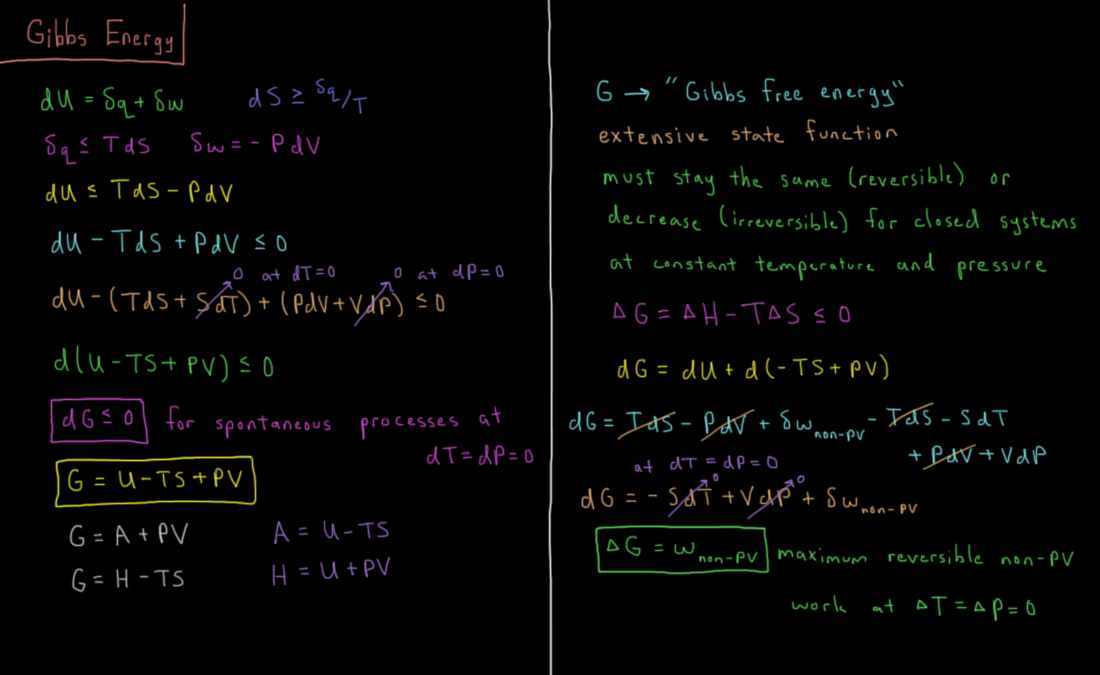 Gibbs Energy
dU = δq + δw    dS ≥ δq/T
δq ≤ TdS    δw = - PdV
dU ≤ TdS - PdV
dU - TdS + PdV ≤ 0
0 at dT=0    0 at dP=0
dU - (TdS + SdT) + (PdV + VdP) ≤ 0
d(U - TS + PV) ≤ 0
dG ≤ 0 for spontaneous processes at
dT = dP = 0
G = U - TS + PV
G = A + PV    A = U - TS
G = H - TS    H = U + PV
G → "Gibbs free energy"
extensive state function
must stay the same (reversible) or
decrease (irreversible) for closed systems
at constant temperature and pressure
ΔG = ΔH - TΔS ≤ 0
dG = dU + d(-TS + PV)
dG = TdS - PdV + δw non-PV - TdS - SdT
+ PdV + VdP
at dT = dP = 0    0    0
dG = - SdT + VdP + δw non-PV
ΔG = w non-PV maximum reversible non-PV
work at ΔT = ΔP = 0